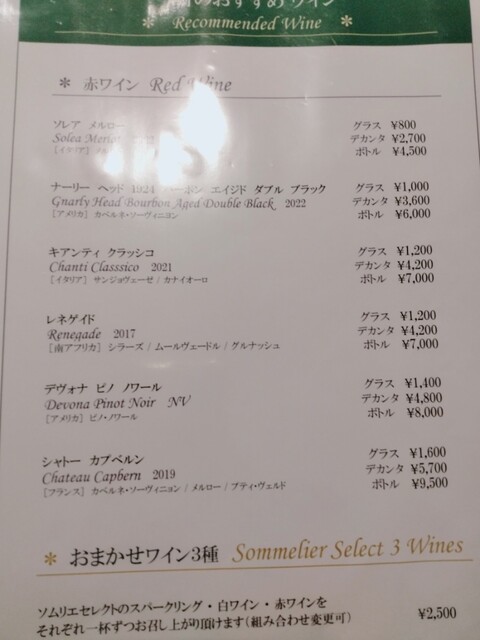 のおすすめワイン
* Recommended Wine *
* 赤ワイン Red Wine
ソレア メルロー グラス ¥800
Solea Merlot デカンタ ¥2,700
[イタリア] ボトル ¥4,500
ナーリー ヘッド 1924 バーボン エイジド ダブル ブラック グラス ¥1,000
Gnarly Head Bourbon Aged Double Black 2022 デカンタ ¥3,600
[アメリカ] カベルネ・ソーヴィニヨン ボトル ¥6,000
キアンティ クラッシコ グラス ¥1,200
Chanti Classsico 2021 デカンタ ¥4,200
[イタリア] サンジョヴェーゼ / カナイオーロ ボトル ¥7,000
レネゲイド グラス ¥1,200
Renegade 2017 デカンタ ¥4,200
[南アフリカ] シラーズ / ムールヴェードル / グルナッシュ ボトル ¥7,000
デヴォナ ピノ ノワール グラス ¥1,400
Devona Pinot Noir NV デカンタ ¥4,800
[アメリカ] ピノ・ノワール ボトル ¥8,000
シャトー カプベルン グラス ¥1,600
Chateau Capbern 2019 デカンタ ¥5,700
[フランス] カベルネ・ソーヴィニヨン / メルロー / プティ・ヴェルド ボトル ¥9,500
* おまかせワイン3種 Sommelier Select 3 Wines
ソムリエセレクトのスパークリング・白ワイン・赤ワインを
それぞれ一杯ずつお召し上がり頂けます(組み合わせ変更可) ¥2,500